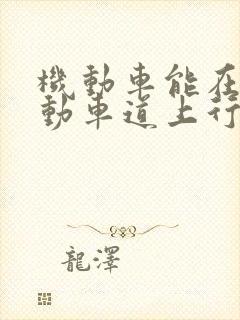 機動車能在
動車道上行
龍澤